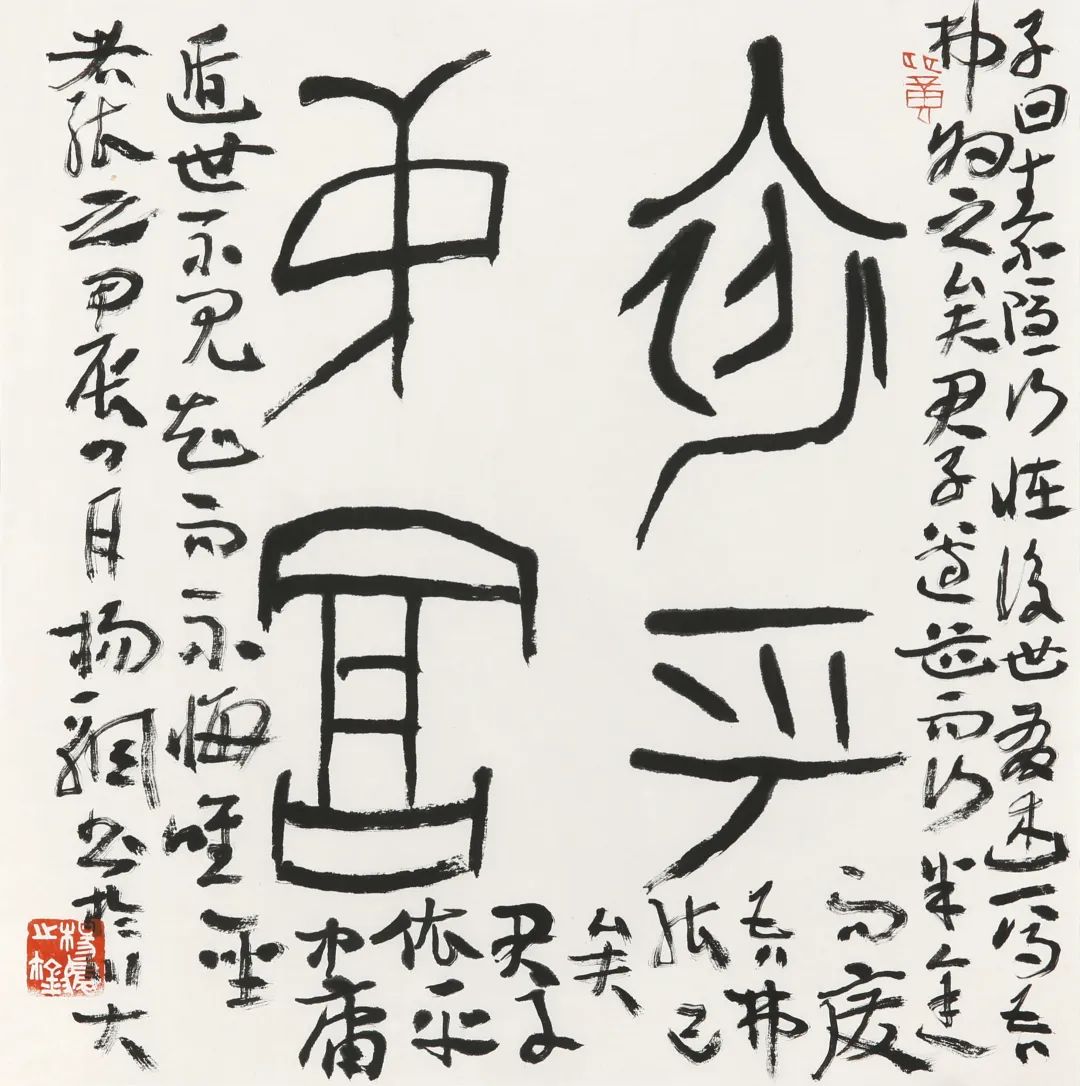 依乎
中庸
子曰素隱行怪後世有述焉吾
弗為之矣君子遵道而行半途
而廢
吾弗
能已
矣
君子
依乎
中庸
遁世不見知而不悔唯聖
者能之甲辰四月楊書於川大